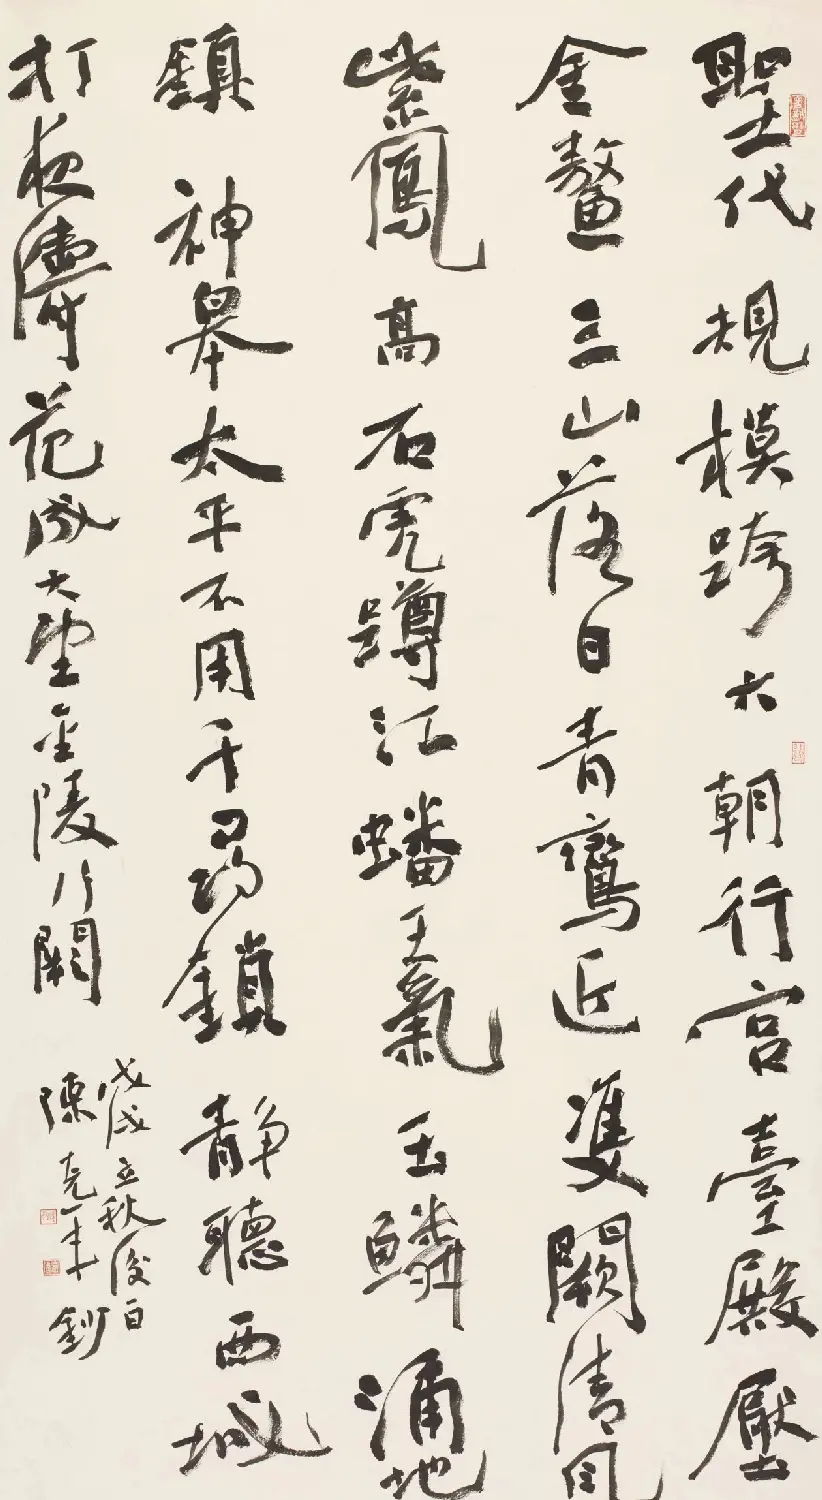 聖代規模跨六朝行宮臺殿壓
金鰲三山落日青鸞近雙闕清風
紫鳳高石虎蹲江蟠王氣玉鱗涌地
鎮神皋太平不用千尋鎖静聽西城
打夜濤范成大望金陵行闕
戊戌立秋後一日
陳克年鈔